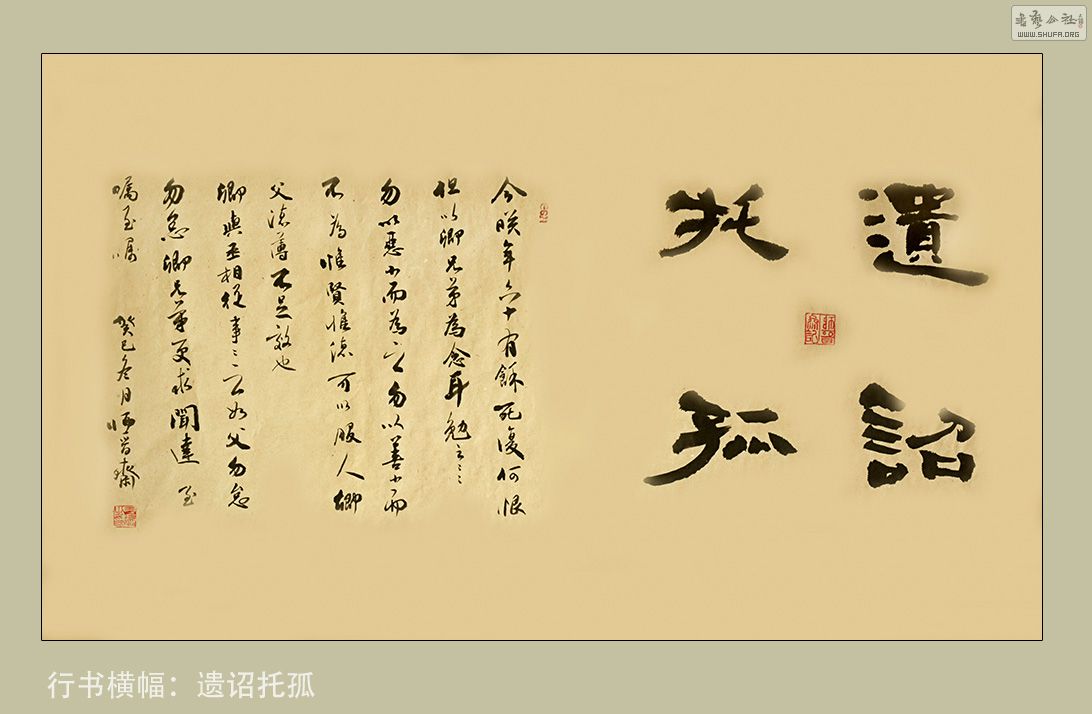 書藝公社
WWW.SHUFA.ORG
遺詔
托孤
今朕年六十有餘死復何恨
但以卿兄弟為念耳勉之〻〻
勿以惡小而為之勿以善小而
不為惟賢惟德可以服人卿
父德薄不足效也
卿與丞相從事〻之如父勿怠
勿忘卿兄弟更求聞達 至
囑至囑 癸巳冬月
行书横幅：遗诏托孤